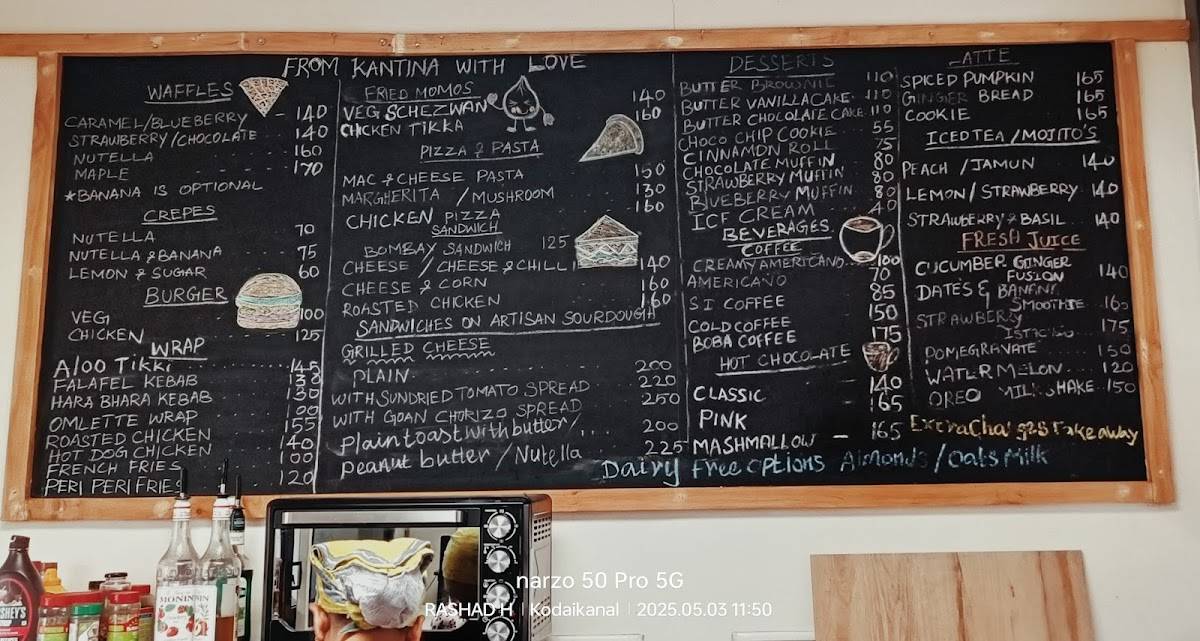 FROM KANTINA WITH LOVE
WAFFLES
CARAMEL/BLUEBERRY 140
STRAWBERRY/CHOCOLATE 140
NUTELLA 160
MAPLE 170
*BANANA IS OPTIONAL
CREPES
NUTELLA 70
NUTELLA & BANANA 75
LEMON & SUGAR 60
BURGER
VEG 100
CHICKEN 125
WRAP
Aloo Tikki 145
FALAFEL KEBAB
HARA BHARA KEBAB 130
OMLETTE WRAP
ROASTED CHICKEN 155
HOT DOG CHICKEN 140
FRENCH FRIES 100
PERI PERI FRIES 120
FRIED MOMOS
VEG SCHEZWAN 140
CHICKEN TIKKA 160
PIZZA & PASTA
MAC & CHEESE PASTA 150
MARGHERITA / MUSHROOM 130
CHICKEN PIZZA 160
SANDWICH
BOMBAY SANDWICH 125
CHEESE / CHEESE & CHILLI 140
CHEESE & CORN 160
ROASTED CHICKEN 160
SANDWICHES ON ARTISAN SOURDOUGH
GRILLED CHEESE
PLAIN 200
WITH SUNDRIED TOMATO SPREAD 220
WITH GOAN CHORIZO SPREAD 250
Plain toast with butter/ 200
peanut butter / Nutella 225
DESSERTS
BUTTER BROWNIE 110
BUTTER VANILLA CAKE 110
BUTTER CHOCOLATE CAKE 110
CHOCO CHIP COOKIE 55
CINNAMON ROLL 75
CHOCOLATE MUFFIN 80
STRAWBERRY MUFFIN 80
BLUEBERRY MUFFIN 80
ICE CREAM 40
BEVERAGES
COFFEE
CREAMY AMERICANO 100
AMERICANO 70
S I COFFEE 85
COLD COFFEE 150
BOBA COFFEE 175
HOT CHOCOLATE
CLASSIC 140
PINK 165
MASHMALLOW - 165
LATTE
SPICED PUMPKIN 165
GINGER BREAD 165
COOKIE 165
ICED TEA / MOJITO'S
PEACH / JAMUN 140
LEMON / STRAWBERRY 140
STRAWBERRY & BASIL 140
FRESH JUICE
CUCUMBER GINGER
FUSION 140
DATES & BANANA
SMOOTHIE 165
STRAWBERRY
175
POMEGRANATE 150
WATERMELON 120
OREO MILK SHAKE 150
Takeaway
Dairy free options Almonds / Oats Milk
HERSHEY'S
MONIN
narzo 50 Pro 5G
RASHAD H | Kodaikanal | 2025.05.03 11:50